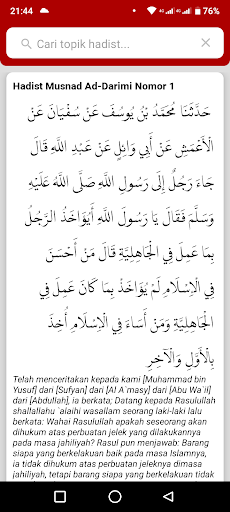 21:44
4G 4G 76%
Cari topik hadist...
Hadist Musnad Ad-Darimi Nomor 1
حَدَّثَنَا مُحَمَّدُ بْنُ يُوسُفَ عَنْ سُفْيَانَ عَنْ
الْأَعْمَشِ عَنْ أَبِي وَائِلٍ عَنْ عَبْدِ اللَّهِ قَالَ
جَاءَ رَجُلٌ إِلَى رَسُولِ اللَّهِ صَلَّى اللَّهُ عَلَيْهِ
وَسَلَّمَ فَقَالَ يَا رَسُولَ اللَّهِ أَيُؤَاخَذُ الرَّجُلُ
بِمَا عَمِلَ فِي الْجَاهِلِيَّةِ قَالَ مَنْ أَحْسَنَ
فِي الْإِسْلَامِ لَمْ يُؤَاخَذْ بِمَا كَانَ عَمِلَ فِي
الْجَاهِلِيَّةِ وَمَنْ أَسَاءَ فِي الْإِسْلَامِ أُخِذَ
بِالْأَوَّلِ وَالْآخِرِ
Telah menceritakan kepada kami [Muhammad bin
Yusuf] dari [Sufyan] dari [Al A`masy] dari [Abu Wa`il]
dari [Abdullah], ia berkata; Datang kepada Rasulullah
shallallahu `alaihi wasallam seorang laki-laki lalu
berkata: Wahai Rasulullah apakah seseorang akan
dihukum atas perbuatan jelek yang dilakukannya
pada masa jahiliyah? Rasul pun menjawab: Barang
siapa yang berkelakuan baik pada masa Islamnya,
ia tidak dihukum atas perbuatan jeleknya dimasa
jahiliyah, tetapi barang siapa yang berkelakuan